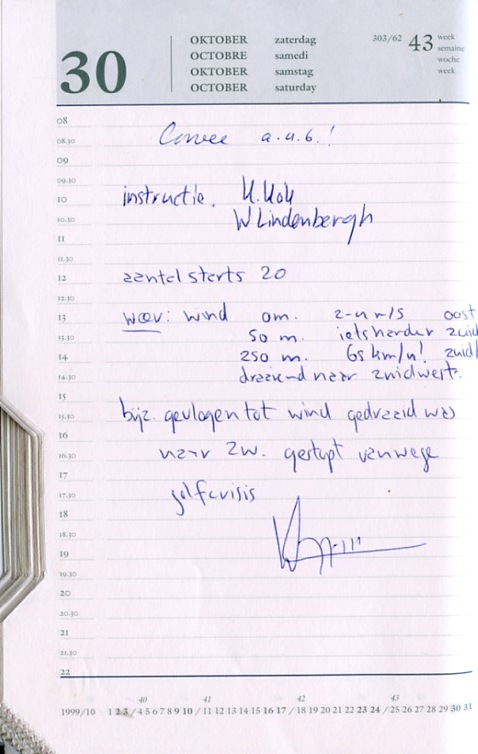 30
OKTOBER zaterdag
OCTOBRE samedi
OKTOBER samstag
OCTOBER saturday
303/62 43 week
semaine
woche
week
08
08.30 a.u.b.!
09
09.30
10 instructie.
10.30 W Lindenbergh
11
11.30
12 aantal starts 20
12.30
13 weer: wind om. 2-4 m/s oost
13.30 50 m. iets harder zuid
14 250 m. 65 km/u! zuid
14.30 draaiend naar zuidwest.
15
15.30 bijz. gevlogen tot wind gedraaid was
16
16.30 naar ZW. gestopt vanwege
17
17.30 golfcrisis
18
18.30
19
19.30
20
20.30
21
21.30
22
40 41 42 43
1999/10 1 2 3 / 4 5 6 7 8 9 10 / 11 12 13 14 15 16 17 / 18 19 20 21 22 23 24 / 25 26 27 28 29 30 31